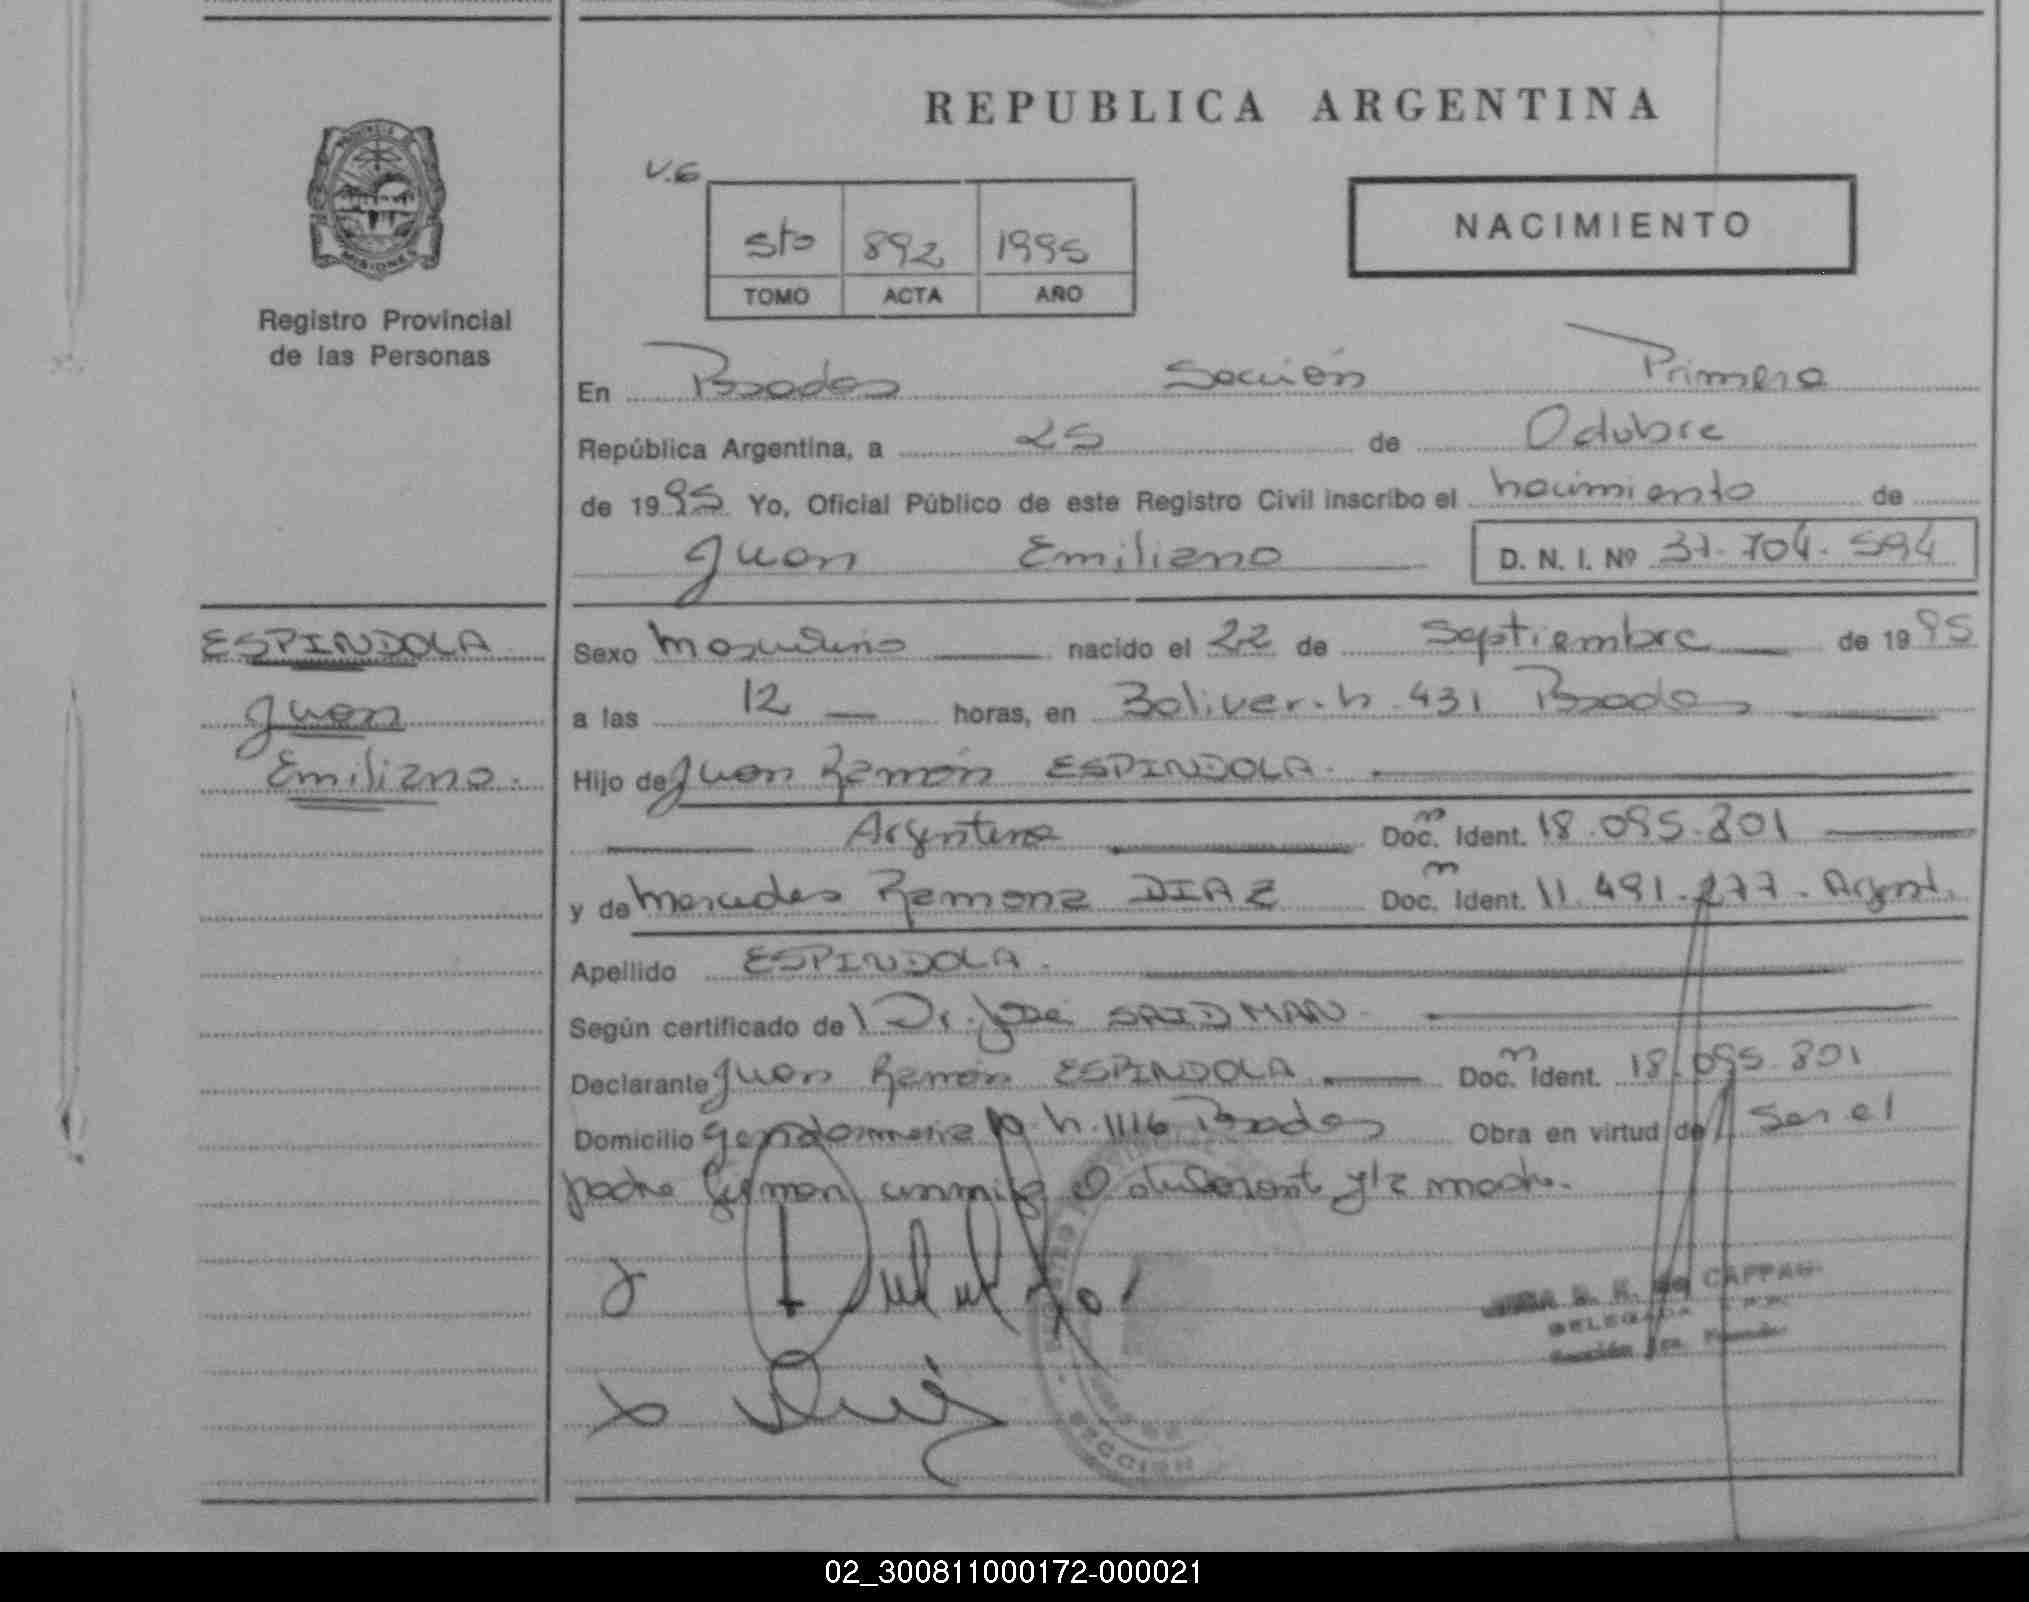 REPUBLICA ARGENTINA
V.6
5to 892 1995
TOMO ACTA AÑO
NACIMIENTO
MISIONES
Registro Provincial
de las Personas
En Posadas Sección Primera
República Argentina, a 25 de Octubre
de 1995 Yo, Oficial Público de este Registro Civil inscribo el nacimiento de
Juan Emiliano D. N. I. Nº 31.704.594
ESPINDOLA
Juan
Emiliano.
Sexo Masculino nacido el 22 de Septiembre de 1995
a las 12 horas, en Bolivar. n. 431 Posadas
Hijo de Juan Ramón ESPINDOLA.
Argentina Doc. Ident. 18.095.801
y de Mercedes Ramona DIAZ Doc. Ident. 11.491.277 - Argent.
Apellido ESPINDOLA.
Según certificado de Dr. José SAIDMAN.
Declarante Juan Ramón ESPINDOLA Doc. Ident. 18.095.801
Domicilio Gendarmeria n. 1116 Posadas Obra en virtud de Ser el
padre firman conmigo el declarante y la madre.
CAPPAU
DELEGADA
Sección 1ra. Posadas
SECCION
02_300811000172-000021